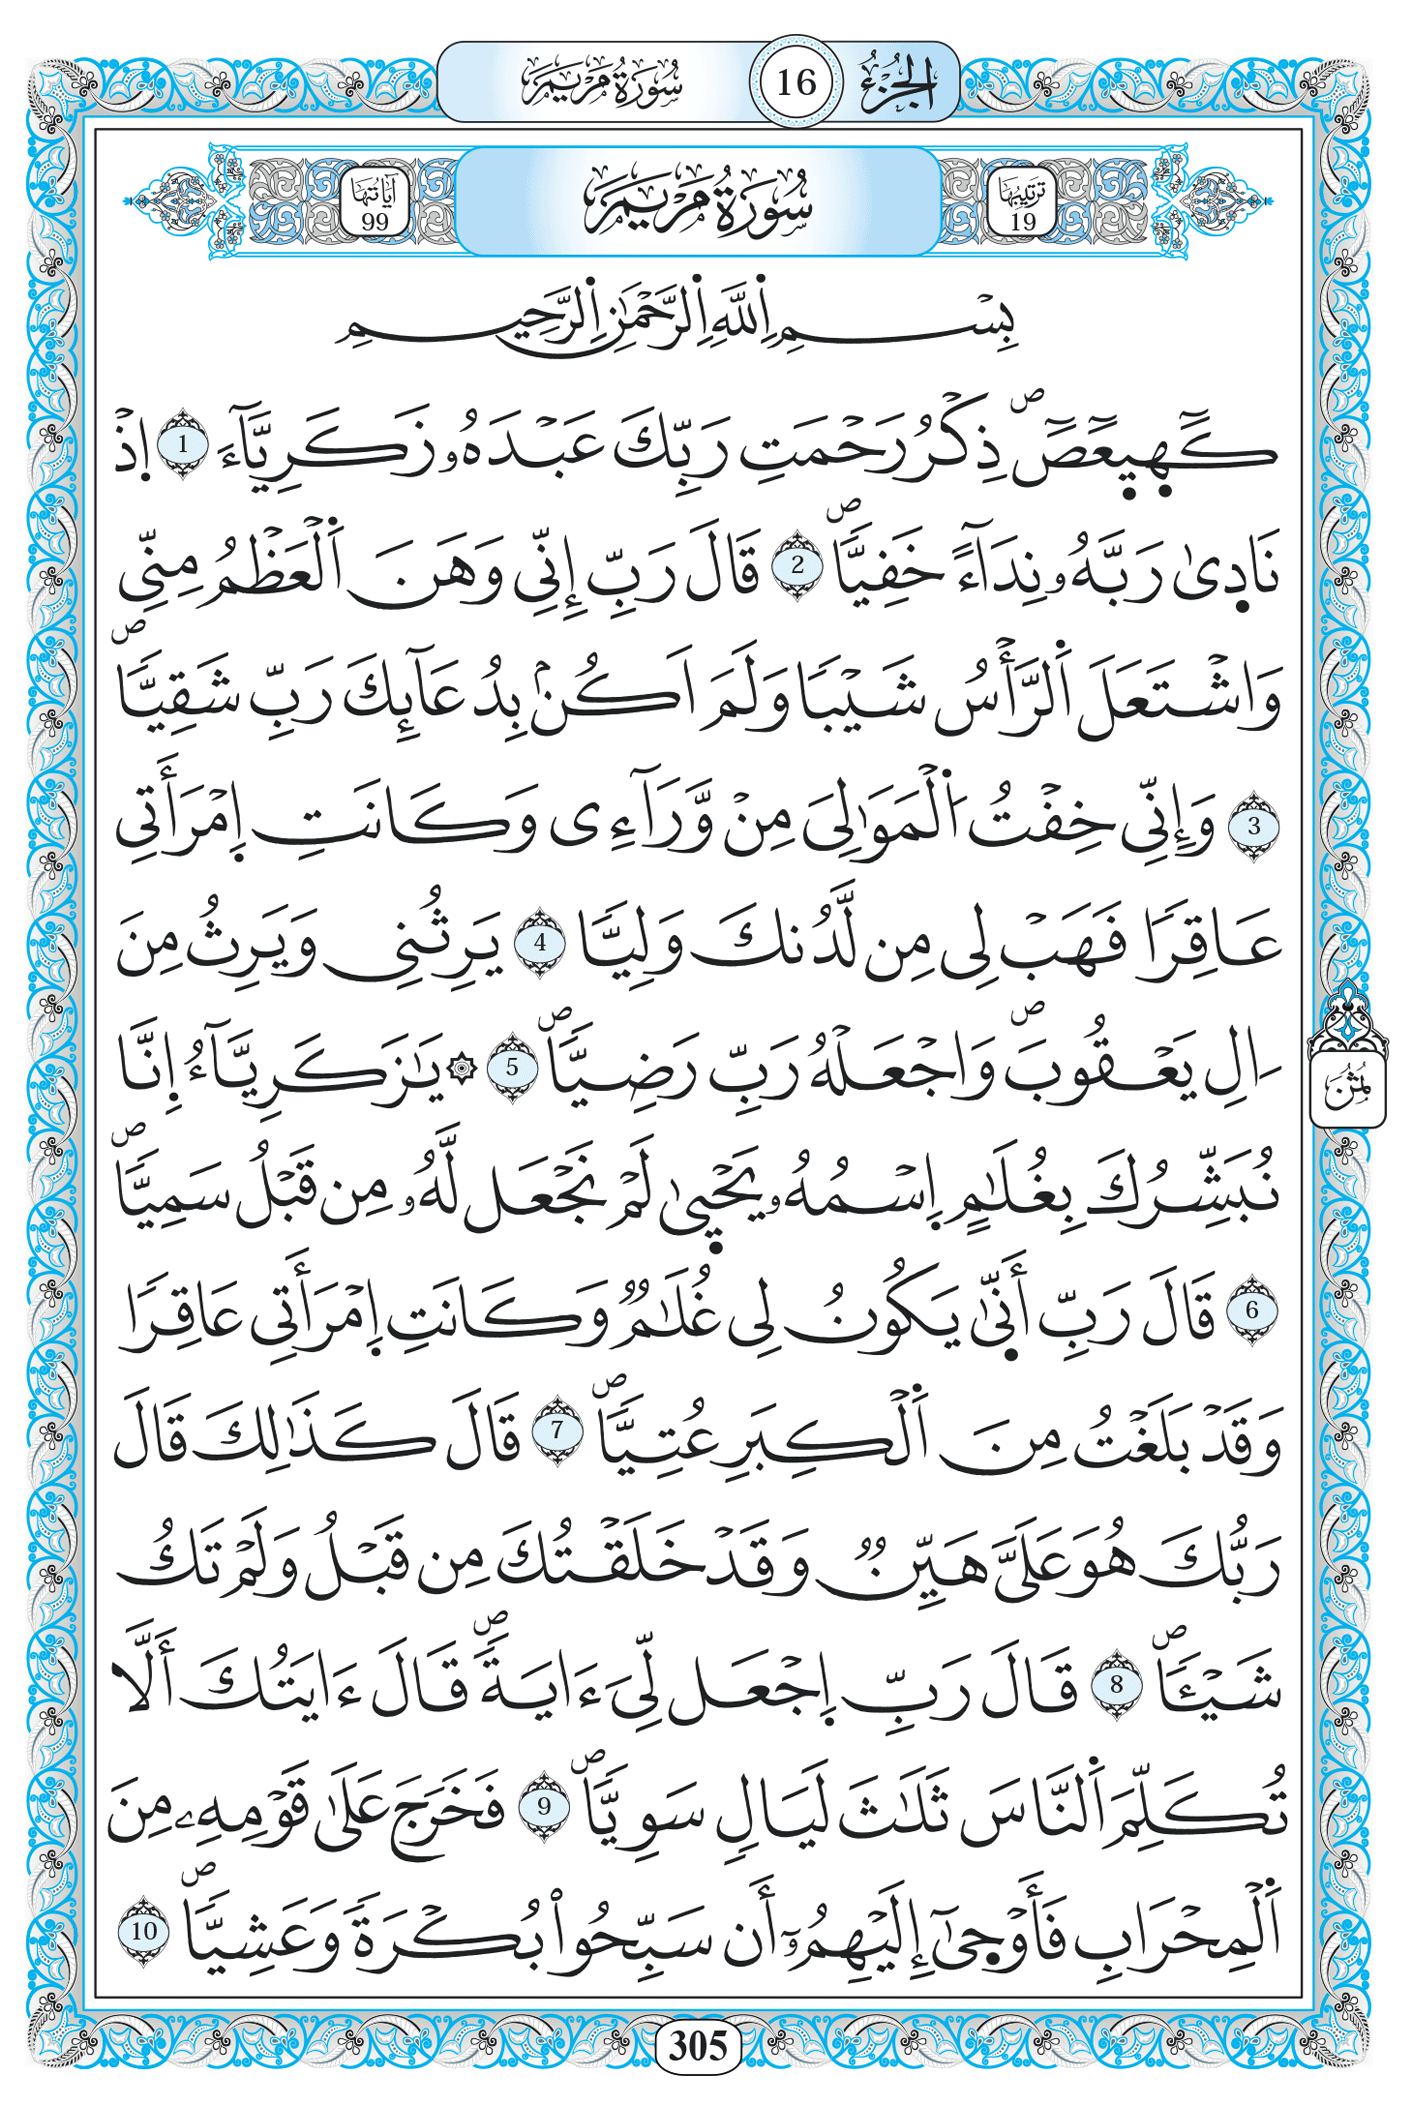 الجزء 16 سورة مريم
ترتيبها 19 سورة مريم آياتها 99
بِسْمِ اِ۬للَّهِ اِ۬لرَّحْمَٰنِ اِ۬لرَّحِيمِ
كَٓهيعَٓصَٓۖ ذِكْرُ رَحْمَتِ رَبِّكَ عَبْدَهُۥ زَكَرِيَّآءَ 1 اِذْ
نَاد۪يٰ رَبَّهُۥ نِدَآءً خَفِيّٗاۖ 2 قَالَ رَبِّ إِنِّي وَهَنَ اَ۬لْعَظْمُ مِنِّي
وَاشْتَعَلَ اَ۬لرَّأْسُ شَيْبٗا وَلَمَ اَكُنۢ بِدُعَآئِكَ رَبِّ شَقِيّٗاۖ
3 وَإِنِّي خِفْتُ اُ۬لْمَوَٰلِيَ مِنْ وَّرَآءِے وَكَانَتِ إِمْرَأَتِي
عَاقِرٗا فَهَبْ لِي مِن لَّدُنكَ وَلِيّٗا 4 يَرِثُنِي وَيَرِثُ مِنَ
اٰلِ يَعْقُوبَۖ وَاجْعَلْهُ رَبِّ رَضِيّٗاۖ 5 ۞ يَٰزَكَرِيَّآءُ إِنَّا
نُبَشِّرُكَ بِغُلَٰمٍ اِسْمُهُۥ يَحْي۪يٰ لَمْ نَجْعَل لَّهُۥ مِن قَبْلُ سَمِيّٗاۖ
6 قَالَ رَبِّ أَنّ۪يٰ يَكُونُ لِي غُلَٰمٞ وَكَانَتِ إِمْرَأَتِي عَاقِرٗا
وَقَدْ بَلَغْتُ مِنَ اَ۬لْكِبَرِ عُتِيّٗاۖ 7 قَالَ كَذَٰلِكَ قَالَ
رَبُّكَ هُوَ عَلَيَّ هَيِّنٞ وَقَدْ خَلَقْتُكَ مِن قَبْلُ وَلَمْ تَكُ
شَيْـٔٗاۖ 8 قَالَ رَبِّ اِجْعَل لِّيَ ءَايَةٗۖ قَالَ ءَايَتُكَ أَلَّا
تُكَلِّمَ اَ۬لنَّاسَ ثَلَٰثَ لَيَالٖ سَوِيّٗاۖ 9 فَخَرَجَ عَلَىٰ قَوْمِهِۦ مِنَ
اَ۬لْمِحْرَابِ فَأَوْح۪يٰٓ إِلَيْهِمُۥٓ أَن سَبِّحُواْ بُكْرَةٗ وَعَشِيّٗاۖ 10
ثمن
305